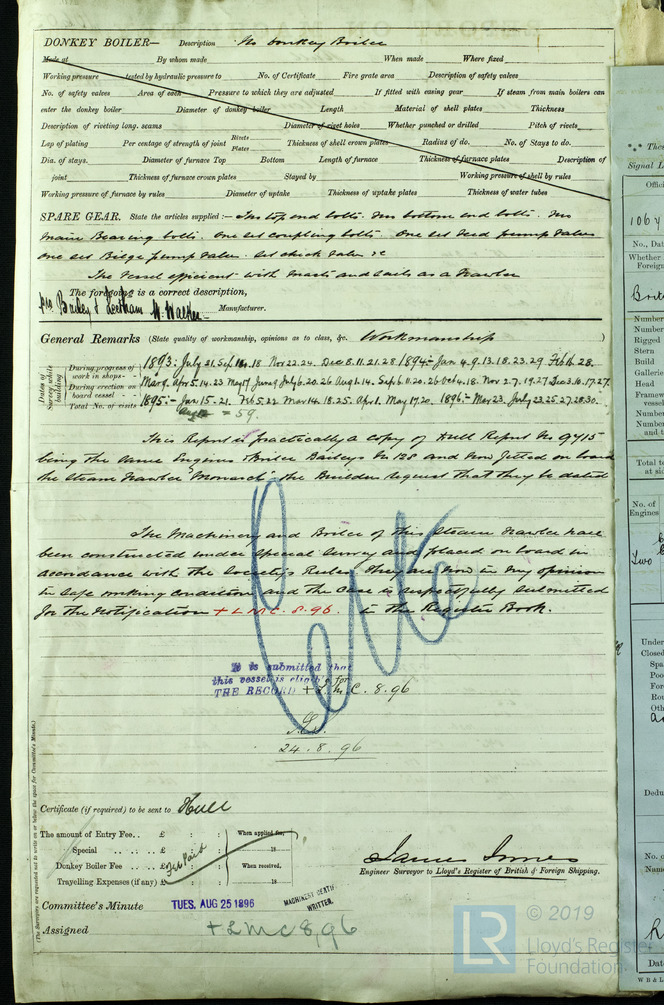 DONKEY BOILER— Description No Donkey Boiler
Made at By whom made When made Where fixed
Working pressure tested by hydraulic pressure to No. of Certificate Fire grate area Description of safety valves
No. of safety valves Area of each Pressure to which they are adjusted If fitted with easing gear If steam from main boilers can
enter the donkey boiler Diameter of donkey boiler Length Material of shell plates Thickness
Description of riveting long. seams Diameter of rivet holes Whether punched or drilled Pitch of rivets
Lap of plating Per centage of strength of joint Rivets Plates Thickness of shell crown plates Radius of do. No. of Stays to do.
Dia. of stays. Diameter of furnace Top Bottom Length of furnace Thickness of furnace plates Description of
joint Thickness of furnace crown plates Stayed by Working pressure of shell by rules
Working pressure of furnace by rules Diameter of uptake Thickness of uptake plates Thickness of water tubes
SPARE GEAR. State the articles supplied:— Two top end bolts. Two bottom end bolts. Two
main Bearing bolts. One set coupling bolts. One set feed pump valves
one set Bilge pump valves. set check valves &c
The Vessel efficient with masts and sails as a Trawler
The foregoing is a correct description,
pro Bailey & Leetham W. Walker Manufacturer.
General Remarks (State quality of workmanship, opinions as to class, &c. Workmanship )
Dates of Survey while building
During progress of work in shops - -
During erection on board vessel - - -
Total No. of visits
1893: July 21. Sep 14. 18 Nov 22. 24. Dec 8. 11. 21. 28 / 1894:- Jan 4. 9. 13. 18. 23. 29 Feb 16. 28.
Mar 9. Apr 5. 14. 23 May 17. June 9 July 6. 20. 26 Aug 1. 14. Sep 6. 11. 20. 26 Oct 4. 18. Nov 2. 7. 19. 27 Dec 3. 6. 17. 27.
1895:- Jan 15 - 21. Feb 5. 22 Mar 14. 18. 25. Apr 1. May 17. 20. 1896:- Mar 23. July 23. 25. 27. 28. 30.
= 59.
This Report is practically a copy of Hull Report No 9715
being the same Engines & Boiler Baileys No 128 and now fitted on board
the Steam Trawler "Monarch" the Builders request that they be dated
The Machinery and Boiler of this Steam Trawler have
been constructed under Special Survey and placed on board in
accordance with the Society's Rules they are now in my opinion
in safe working condition and the case is respectfully submitted
for the Notification + LMC. 8.96. in the Register Book.
It is submitted that
this vessel is eligible for
THE RECORD + L.M.C. 8.96
24. 8. 96
Certificate (if required) to be sent to Hull
The amount of Entry Fee.. £ : : When applied for,
Special .. .. .. £ : : 18
Donkey Boiler Fee .. .. £ : : When received,
Fee Paid
Travelling Expenses (if any) £ : : 18
James Innes
Engineer Surveyor to Lloyd's Register of British & Foreign Shipping.
Committee's Minute TUES. AUG 25 1896
MACHINERY CERTIF. WRITTEN.
Assigned + LMC 8,96
(The Surveyors are requested not to write on or below the space for Committee's Minute.)
© 2019
LR
Lloyd's Register
Foundation